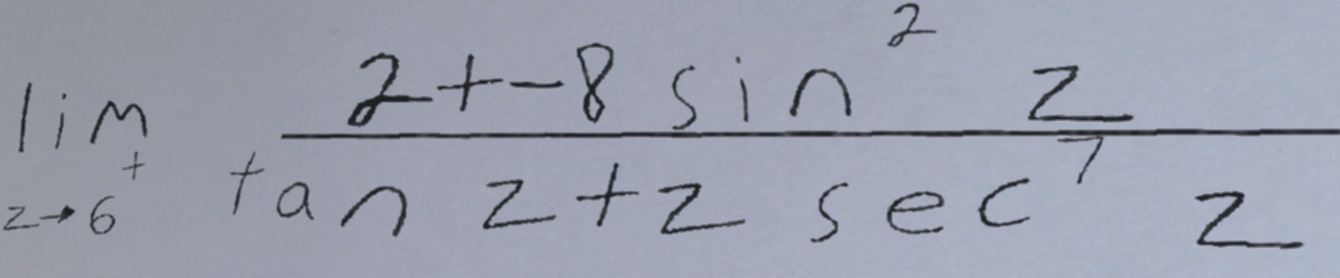 \lim_{z \to 6^+} \frac{2 + -8 \sin^2 z}{\tan z + z \sec^7 z}